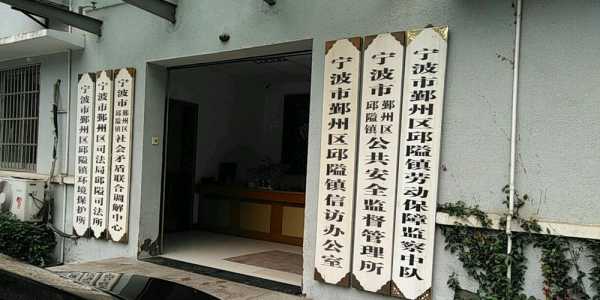 宁波市鄞州区邱隘镇环境保护所
宁波市鄞州区司法局邱隘司法所
宁波市鄞州区邱隘镇社会矛盾联合调解中心
宁波市鄞州区邱隘镇信访办公室
宁波市鄞州区邱隘镇公共安全监督管理所
宁波市鄞州区邱隘镇劳动保障监察中队